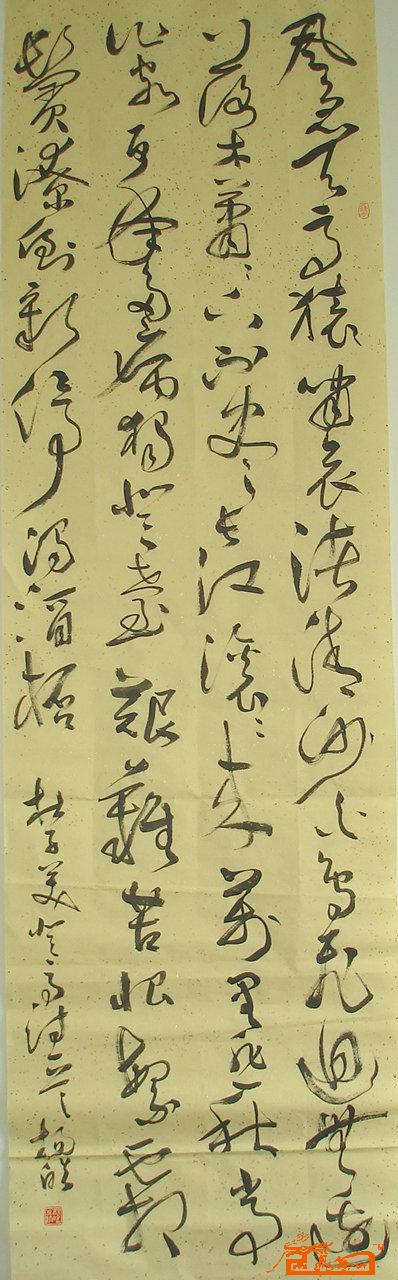 風急天高猿嘯哀渚清沙白鳥飛迴無邊
落木蕭〻下不盡長江滾〻來萬里悲秋常
作客百年多病獨登臺艱難苦恨繁霜
鬢潦倒新停濁酒杯
杜子美登高詩一首